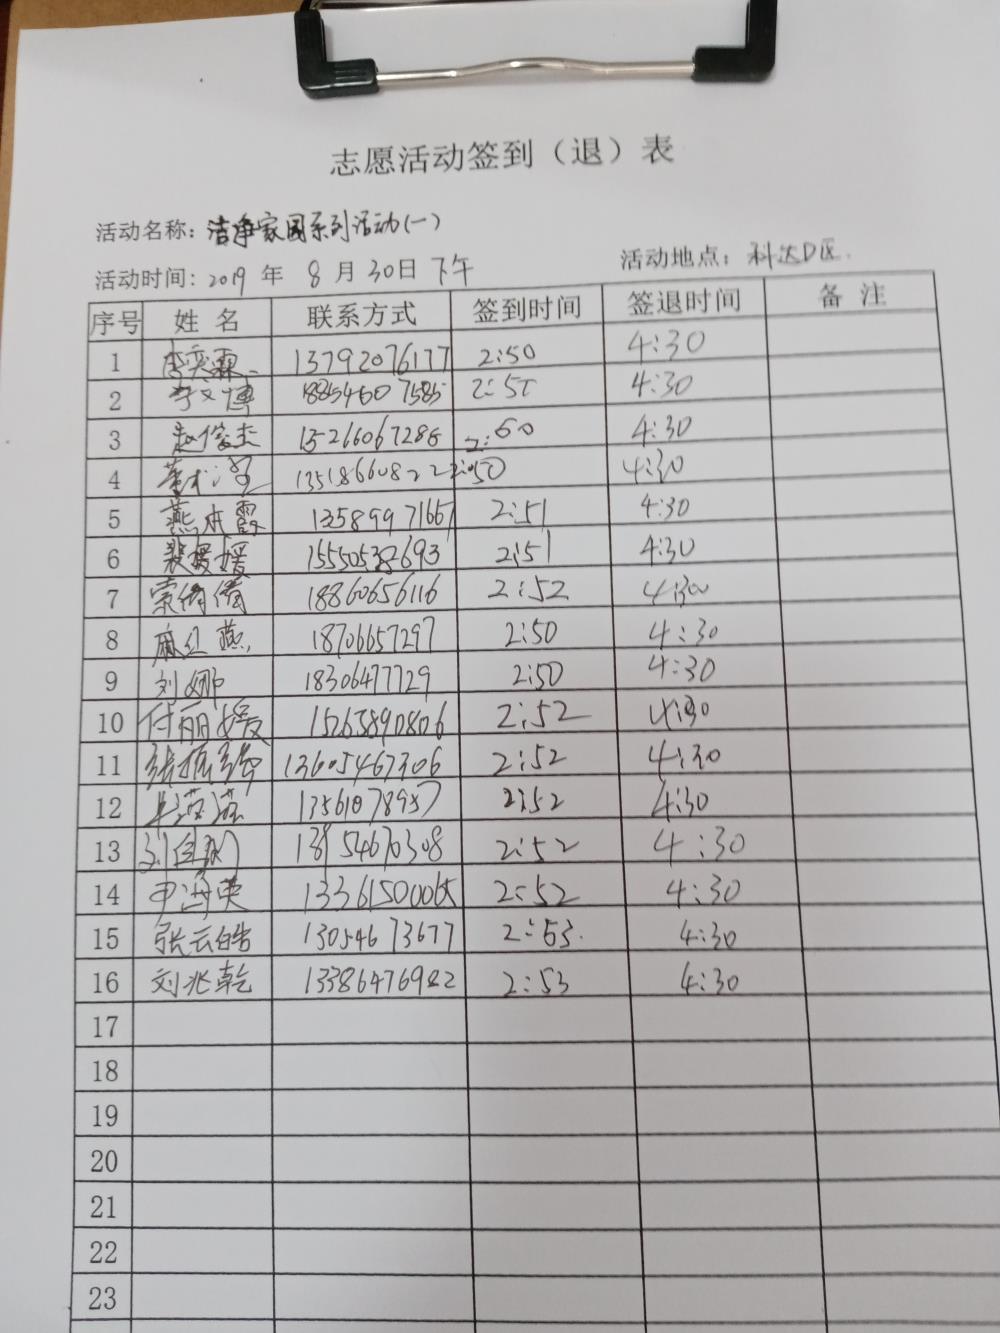 志愿活动签到（退）表
活动名称：洁净家园系列活动(一)
活动时间：2019 年 8 月 30日 下午 活动地点：科达D区.
序号 姓名 联系方式 签到时间 签退时间 备注
1 李奕霖 13792076177 2:50 4:30
2 李文博 18854607585 4:30
3 赵俊杰 15266067286 2:50 4:30
4 13518660822 2:50 4:30
5 燕本霞 13589971667 2:51 4:30
6 裴媛媛 2:51 4:30
7 索倩倩 18860656116 2:52 4:30
8 麻红燕 18706657297 2:50 4:30
9 刘娜 18306477729 2:50 4:30
10 付丽媛 15263890806 2:52 4:30
11 13605467306 2:52 4:30
12 13561078957 2:52 4:30
13 13954670308 2:52 4:30
14 尹海英 13361500065 2:52 4:30
15 张云皓 13054673677 2:53. 4:30
16 刘兆乾 13386476982 2:53 4:30
17
18
19
20
21
22
23